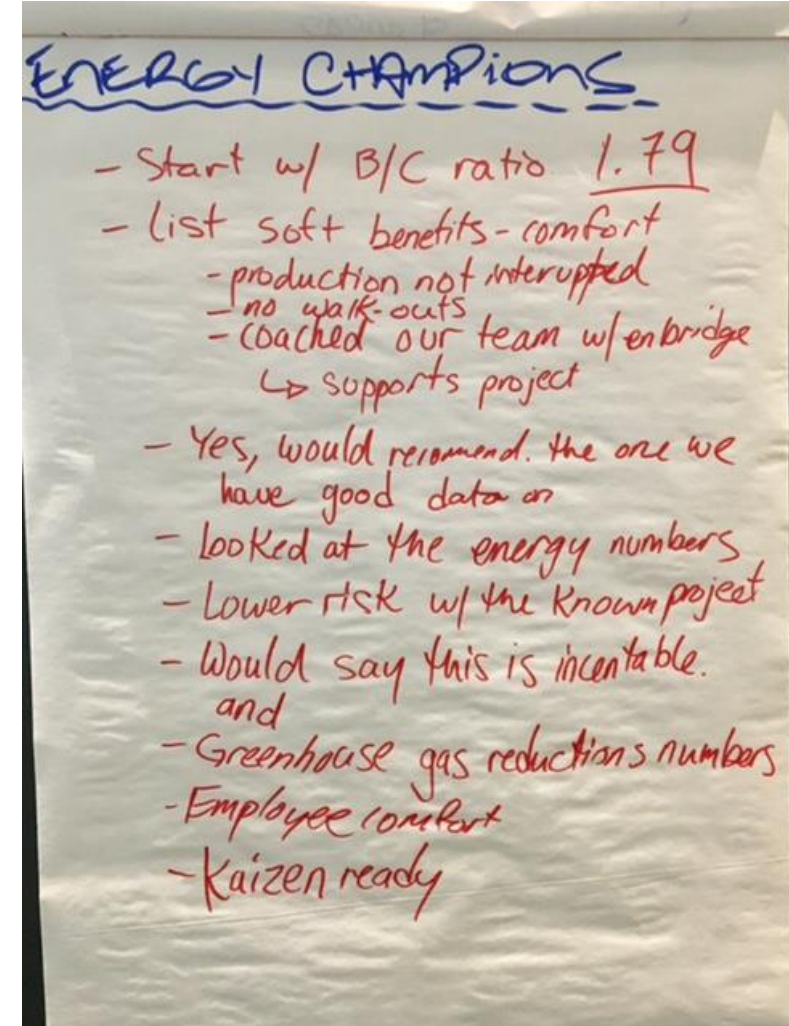 ENERGY CHAMPIONS
- Start w/ B/C ratio 1.79
- List soft benefits - comfort
- production not interupted
- no walk-outs
- coached our team w/ enbridge
↳ supports project
- Yes, would recommend. the one we
have good data on
- Looked at the energy numbers
- Lower risk w/ the known project
- Would say this is incentable.
and
- Greenhouse gas reductions numbers
- Employee comfort
- Kaizen ready